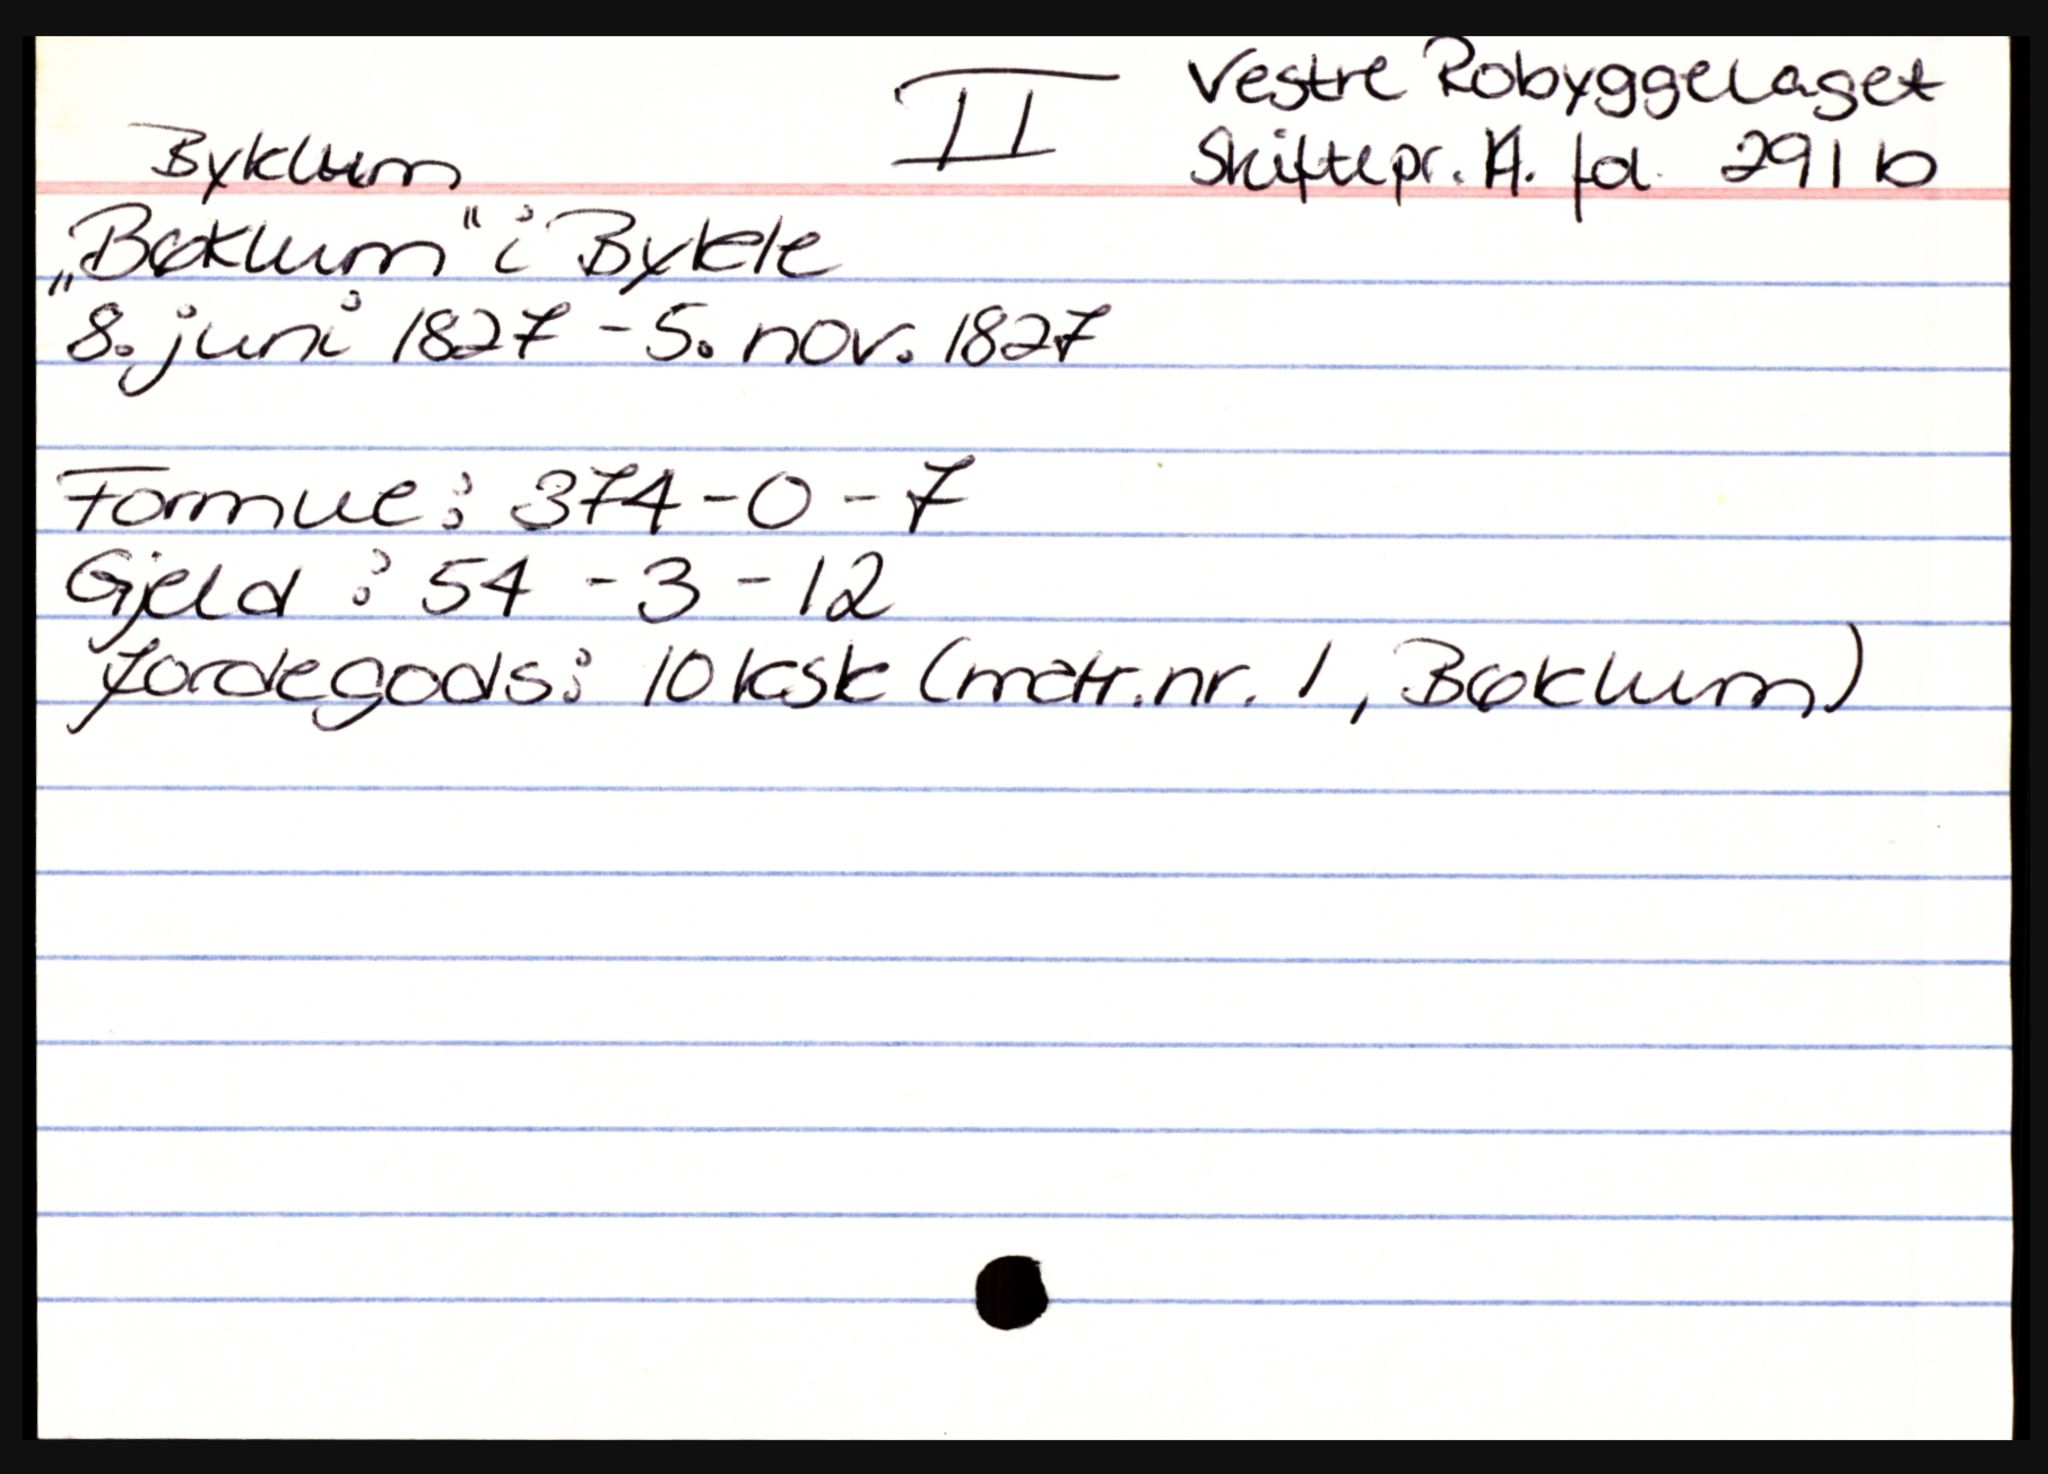 Byklum
II
Vestre Robyggelaget
Skiftepr. A. fol. 291 b
„Bøklum“ i Bykle
8. juni 1827 - 5. nov. 1827
Formue: 374 - 0 - 7
Gjeld : 54 - 3 - 12
Jordegods: 10 ksk (matr.nr. 1, Bøklum)